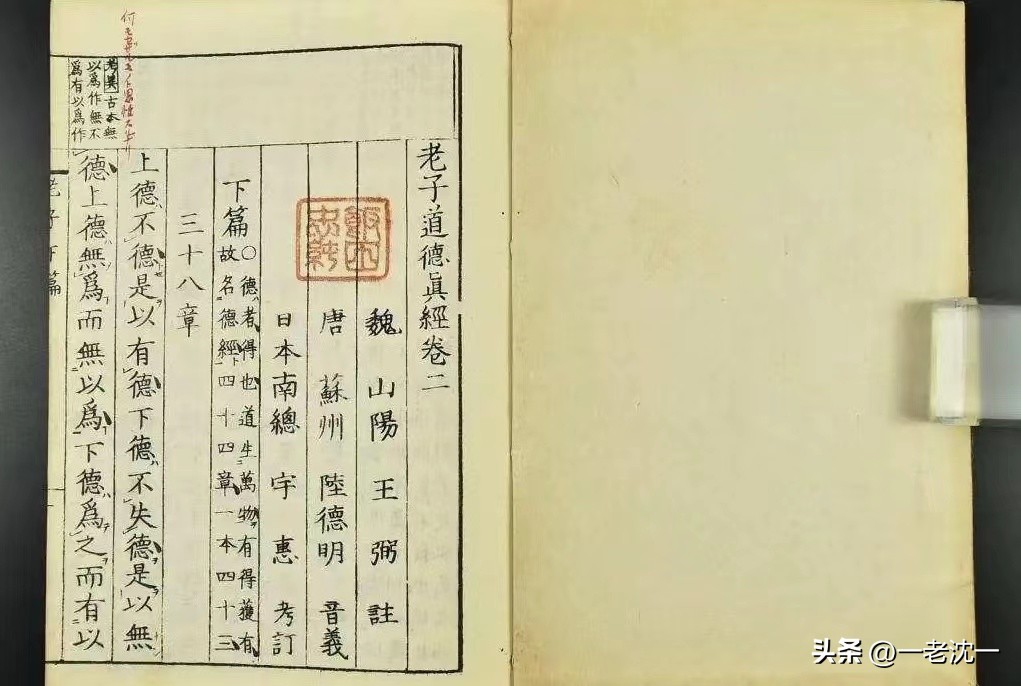 老子道德眞經卷二
魏 山陽 王弼 註
唐 蘇州 陸德明 音義
日本南總 宇惠 考訂
下篇〇德者得也道生萬物有得獲有
故名德經四十四章一本四十三
三十八章
上德不德是以有德下德不失德是以無
德上德無爲而無以爲下德爲之而有以
考異古本無
以爲作無不
爲有以爲作
老子下篇
头条 @一老沈一